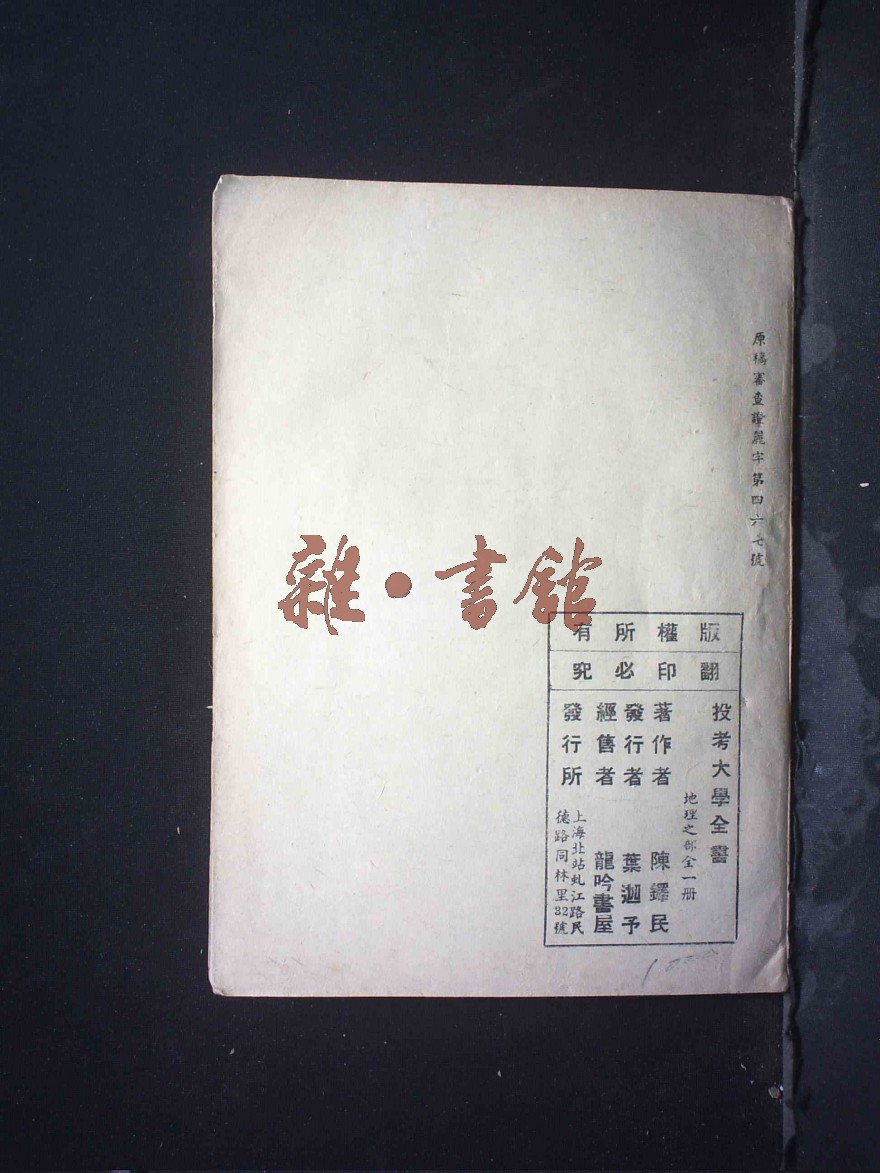 原稿審查證麗字第四六七號
版權所有
翻印必究
投考大學全書
地理之部全一册
著作者 陳鐸民
發行者 葉迦予
經售者 龍吟書屋
發行所 上海北站虬江路民
德路同林里32號
雜·書館